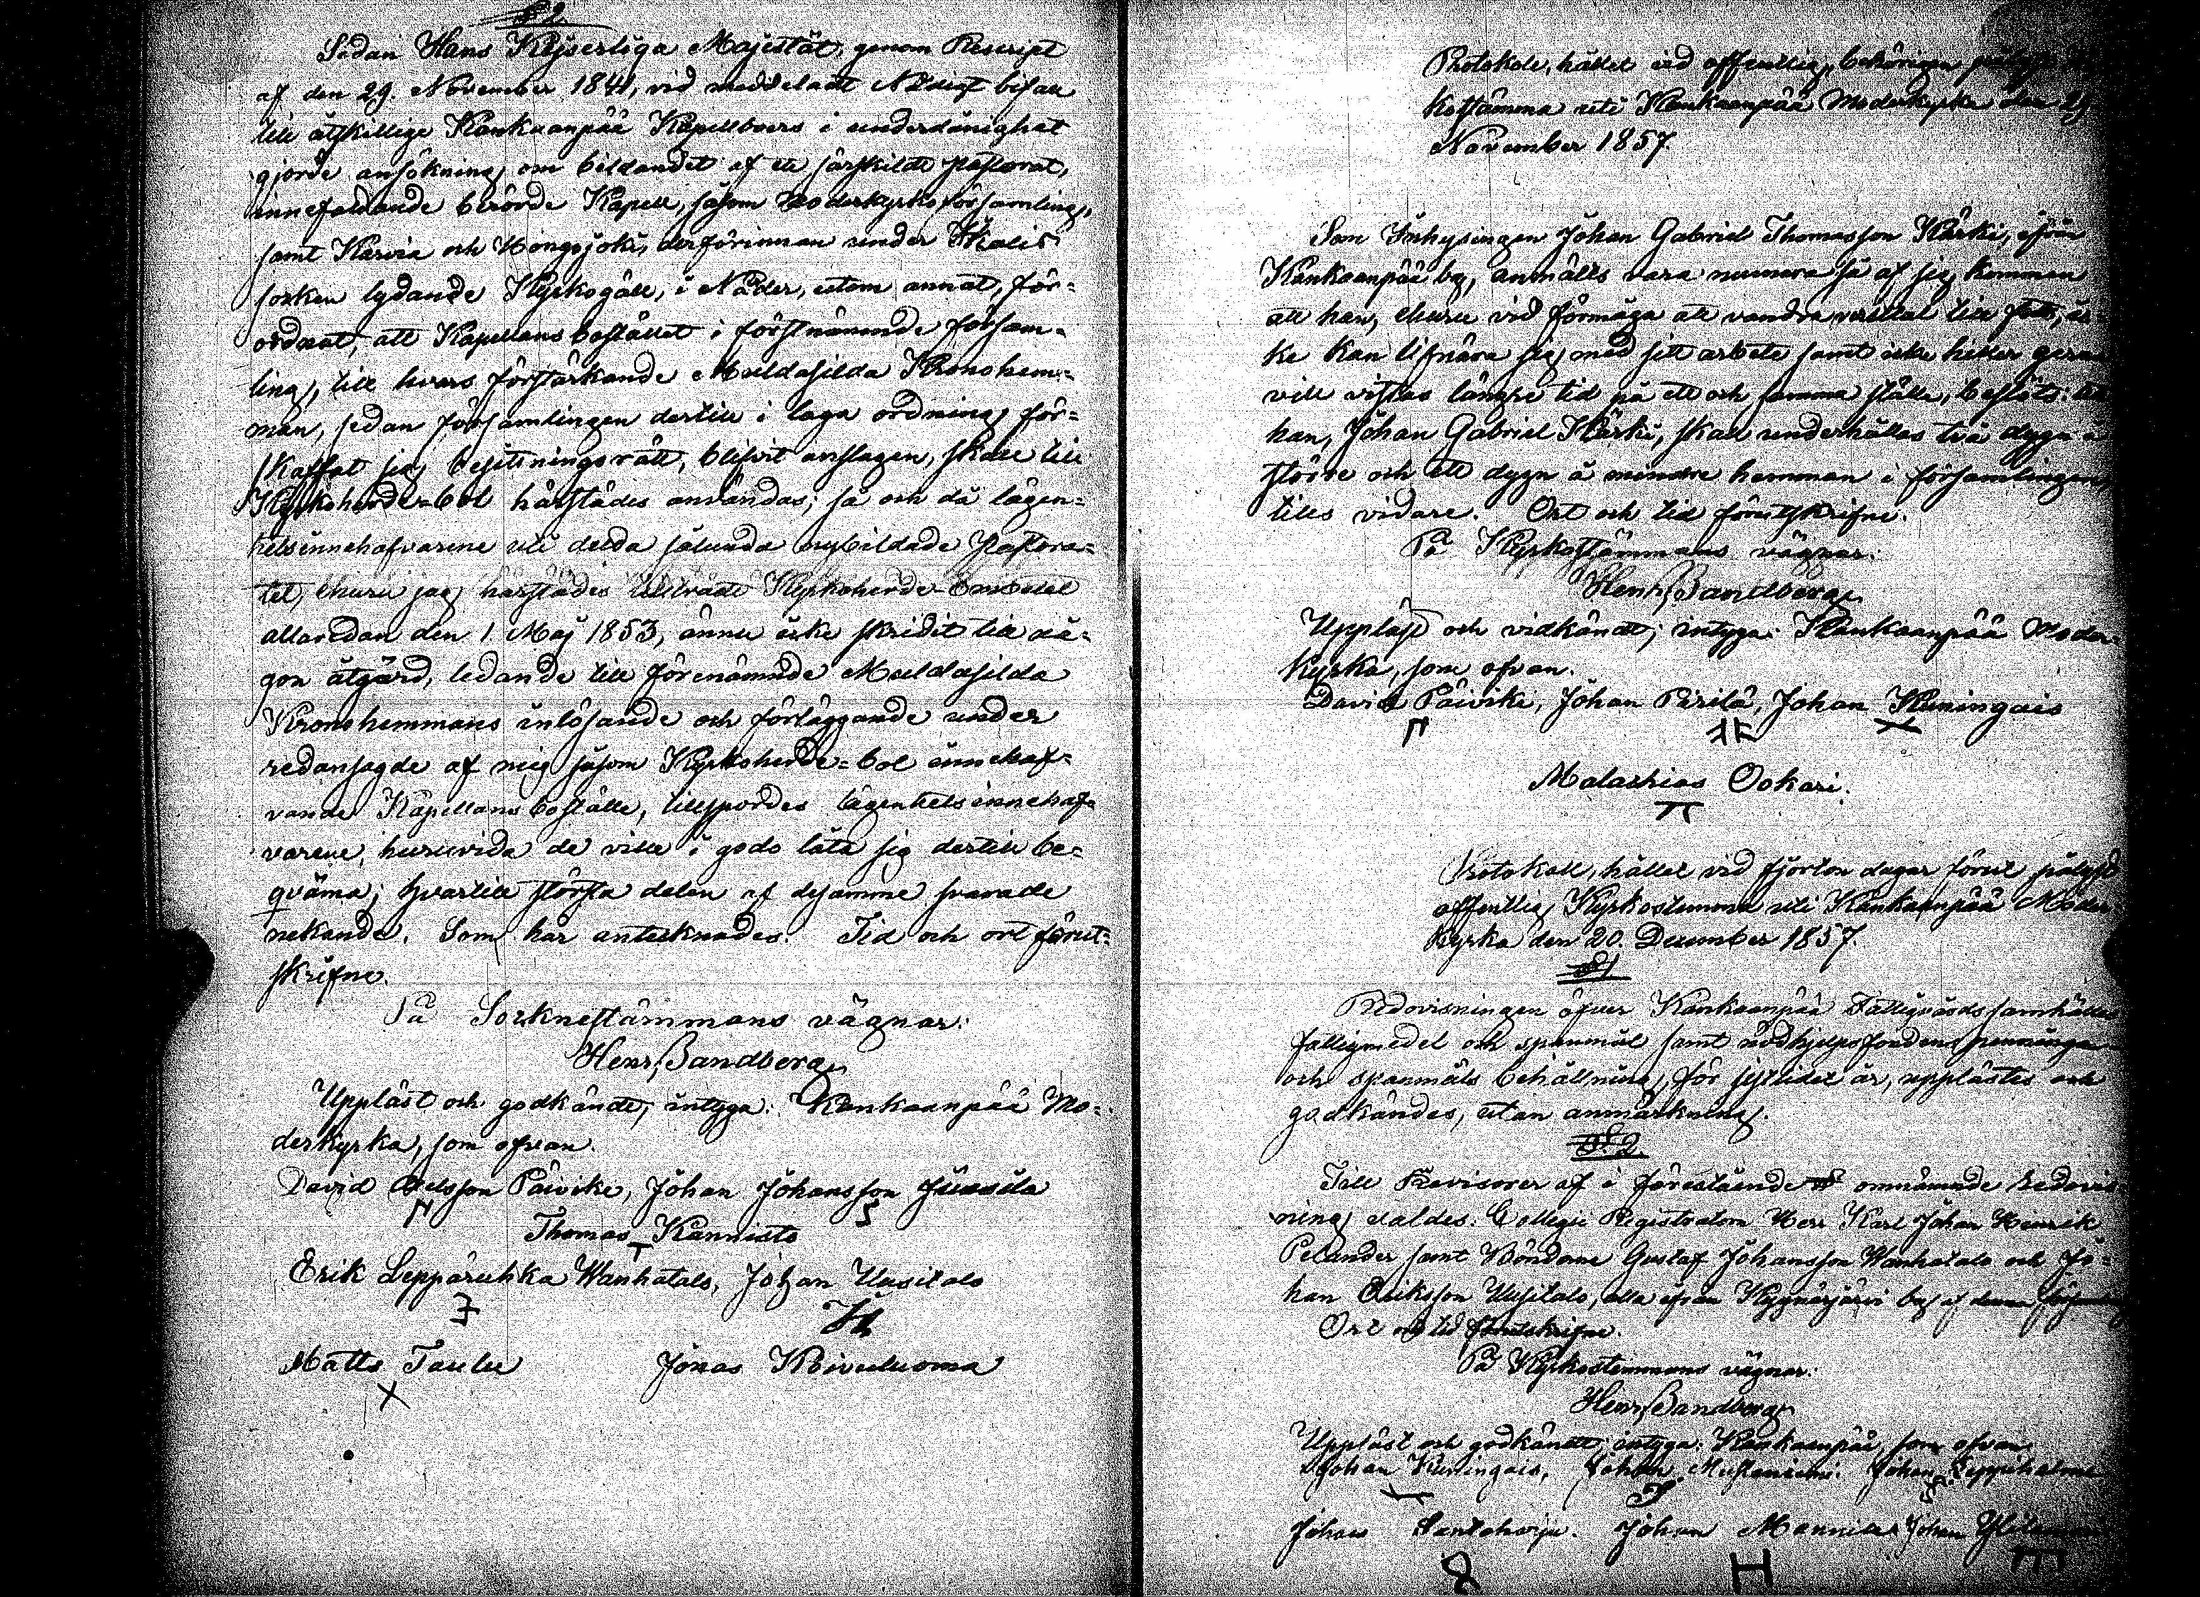 § 2.
Sedan Hans Kejserliga Majestät, genom Rescript
af den 29. November 1841, vid meddeladt Nådigt bifall
till åtskillige Kankaanpää Kapellboers i underdånighet
gjorde ansökning om bildandet af ett särskildt pastorat,
innefattande berörde Kapell, såsom moderkyrkoförsamling,
samt Karvia och Hongojoki, derförinnan under Ikalis
socken lydande Kyrkogäll, i Nåder, utom annat, för-
ordnat, att Kapellansbostället i förstnämnde försam-
ling, till hvars förstärkande Multasilda Kronohem-
man, sedan församlingen dertill i laga ordning för-
skaffat sig besittningsrätt, blifvit anslagen, skall till
Kyrkoherde-bol härstädes användas; så och då lägen-
hetsinnehafvarene uti detta sålunda nybildade Pastora-
tet, ehuru jag härstädes tillträdt Kyrkoherde-Embetet
allaredan den 1. Maj 1853, ännu icke skridit till nå-
gon åtgärd, ledande till förenämnde Multasilda
Kronohemmans inlösande och förläggande under
redansagde af mig såsom Kyrkoherde-bol innehaf-
vande Kapellansboställe, tillspordes lägenhetsinnehaf-
varene, huruvida de ville i godo låta sig dertill be-
qväma; hvartill största delen af desamme svarade
nekande. Som här antecknades. Tid och ort förut-
skrifne.
På Socknestämmans vägnar:
Henr. Sandberg
Uppläst och godkändt, intyga: Kankaanpää Mo-
derkyrka, som ofvan.
David Päivike, Johan Johansson Jussila
Thomas Kannisto
Erik Leppäruhka Wanhatalo, Johan Uusitalo
Matts Taulu Jonas Kiviluoma
Protokoll, hållet vid offentlig, behörigen
kostämma uti Kankaanpää Moderkyrka den 29
November 1857.
Som Inhysingen Johan Gabriel Thomasson Kärki, ifrån
Kankaanpää by, anmälts vara numera så af sig kommen
att han, ehuru vid förmåga att vandra till
ke kan lifnära sig med sitt arbete samt icke heller gerna
vill vistas längre tid på ett och samma ställe, beslöts: att
han, Johan Gabriel Kärki, skall underhållas två dygn å
större och ett dygn å mindre hemman i församlingen,
tills vidare. Ort och tid förutskrifne.
På Kyrkostämmans vägnar:
Henr. Sandberg
Uppläst och vidkändt, intyga: Kankaanpää Moder-
kyrka, som ofvan.
David Päivike, Johan Pirilä, Johan Kuningais
Malachias Ookari.
Protokoll, hållet vid fjorton dagar förut pålyst
offentlig Kyrkostemma uti Kankaanpää Moder
kyrka den 20. December 1857.
§ 1
Redovisningen öfver Kankaanpää Fattigvårdssamhälles
fattigmedel och spanmål samt nödhjelpsfondens penninge
och spanmåls behållning, för sistlidet år, upplästes och
godkändes, utan anmärkning.
§ 2.
Till Revisorer af i förestående § omnämnde redovis
ning valdes: Collegii Registratorn Herr Karl Johan Henrik
Pelander samt Bönderne Gustaf Johansson Wanhatalo och Jo-
han Eriksson Uusitalo, alla ifrån by af denna
Ort och tid förutskrifne.
På Kyrkostemmans vägnar:
Henr. Sandberg
Uppläst och godkändt, intyga: Kankaanpää, som ofvan.
Johan Kuningais, Johan Mustaniemi. Johan
Johan Santaharju. Johan Mannila Johan